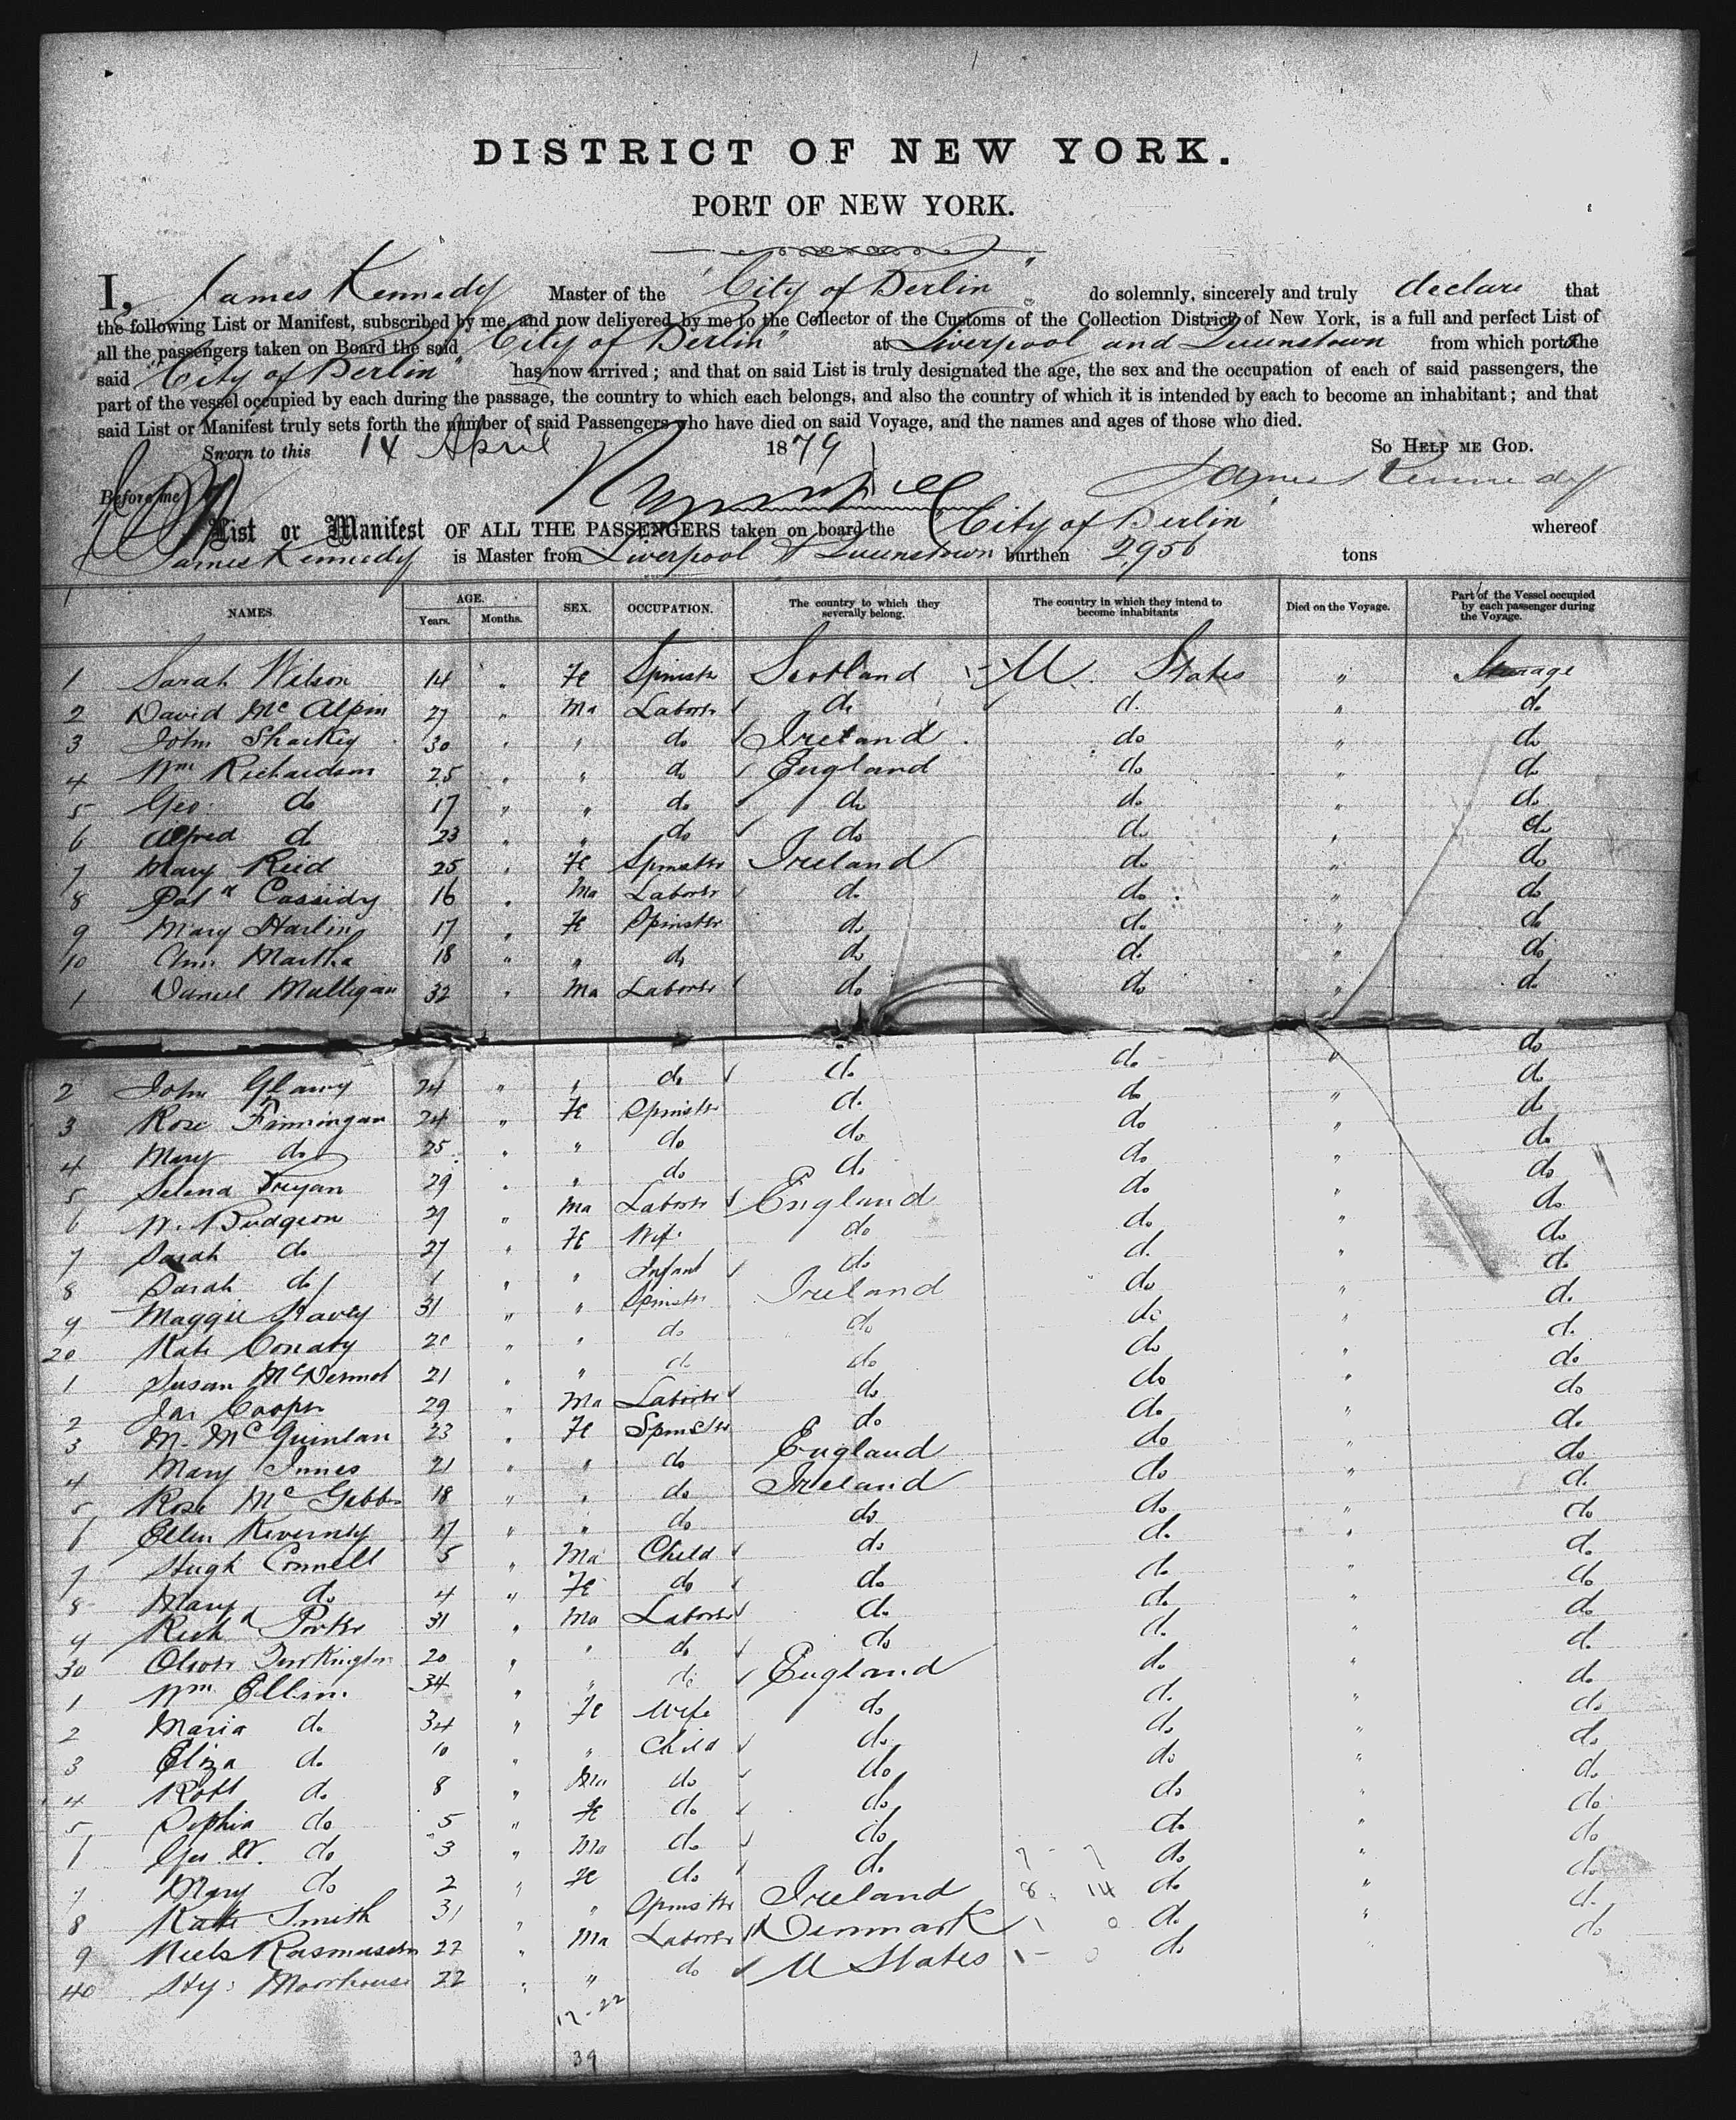 DISTRICT OF NEW YORK.
PORT OF NEW YORK.
I, James Kennedy Master of the "City of Berlin" do solemnly, sincerely and truly declare that
the following List or Manifest, subscribed by me, and now delivered by me to the Collector of the Customs of the Collection District of New York, is a full and perfect List of
all the passengers taken on Board the said "City of Berlin" at Liverpool and Queenstown from which port the
said "City of Berlin" has now arrived; and that on said List is truly designated the age, the sex and the occupation of each of said passengers, the
part of the vessel occupied by each during the passage, the country to which each belongs, and also the country of which it is intended by each to become an inhabitant; and that
said List or Manifest truly sets forth the number of said Passengers who have died on said Voyage, and the names and ages of those who died.
Sworn to this 14 April 1879 So HELP ME GOD.
Before me James Kennedy
List or Manifest OF ALL THE PASSENGERS taken on board the "City of Berlin" whereof
James Kennedy is Master from Liverpool & Queenstown burthen 2956 tons
NAMES. AGE. Years. Months. SEX. OCCUPATION. The country to which they severally belong. The country in which they intend to become inhabitants Died on the Voyage. Part of the Vessel occupied by each passenger during the Voyage.
1 Sarah Wilson 14 " Fe Spinster Scotland U. States " Steerage
2 David Mc Alpin 27 " Ma Laborer do do " do
3 John Sharkey 30 " " do Ireland do " do
4 Wm Richardson 25 " " do England do " do
5 Geo. do 17 " " do do do " do
6 Alfred do 23 " " do do do " do
7 Mary Reid 25 " Fe Spinster Ireland do " do
8 Patk Cassidy 16 " Ma Laborer do do " do
9 Mary Harlin 17 " Fe Spinster do do " do
10 Ann Martha 18 " " do do do " do
1 Daniel Mulligan 32 " Ma Laborer do do " do
2 John Glancy 24 " " do do do " do
3 Rose Finningan 24 " Fe Spinster do do " do
4 Mary do 25 " " do do do " do
5 Selena 29 " " do do do " do
6 W. Budgeon 29 " Ma Laborer England do " do
7 Sarah do 27 " Fe Wife do do " do
8 Sarah do 1 " " Infant do do " do
9 Maggie 31 " " Spinster Ireland do " do
20 Kate Conaty 20 " " do do do " do
1 Susan McDermot 21 " " do do do " do
2 Jas Cooper 29 " Ma Laborer do do " do
3 M. McQuinlan 23 " Fe Spinster do do " do
4 Mary Innes 21 " " do England do " do
5 Rose 18 " " do Ireland do " do
6 Ellen 17 " " do do do " do
7 Hugh Connell 5 " Ma Child do do " do
8 Mary do 4 " Fe do do do " do
9 Richd Porter 31 " Ma Laborer do do " do
30 Oliver Turkington 20 " " do do do " do
1 Wm 34 " " do England do " do
2 Maria do 34 " Fe Wife do do " do
3 Eliza do 10 " " Child do do " do
4 Robt do 8 " Ma do do do " do
5 Sophia do 5 " Fe do do do " do
6 Geo. W. do 3 " Ma do do do " do
7 Mary do 2 " Fe do do do " do
8 Kate Smith 31 " " Spinster Ireland do " do
9 Niels Rasmussen 22 " Ma Laborer Denmark do " do
40 Hy: Moorhouse 22 " " do U States do do
17-22
39